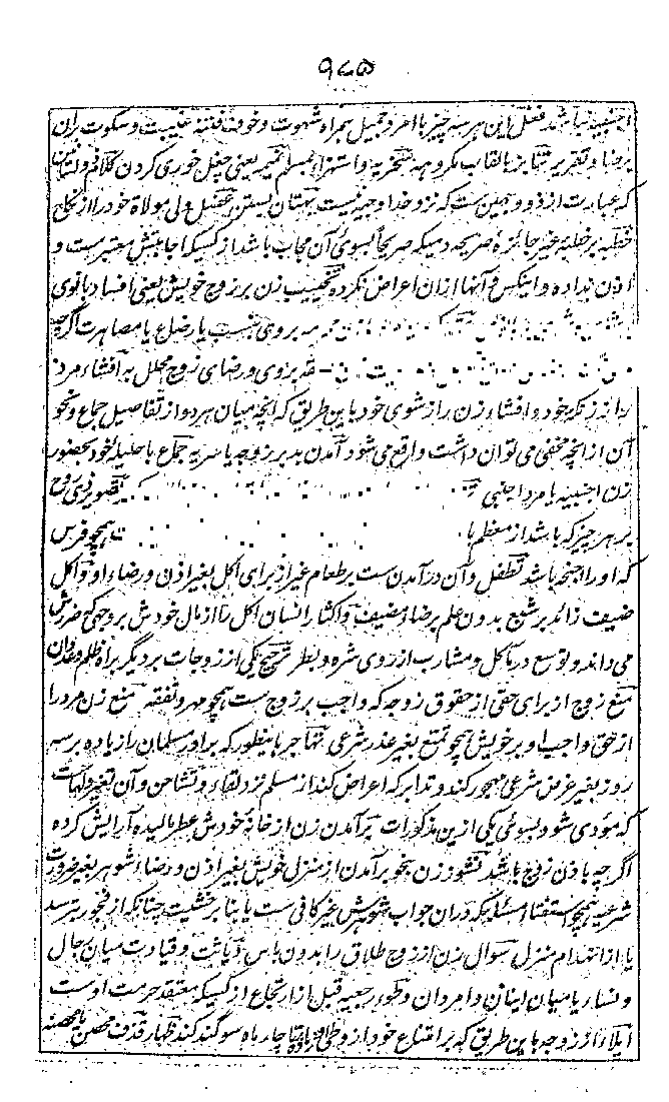 ۹۸۵
اجنبیه نباشد فعل این هر سه چیز با امرد جمیل همراه شهوت و خوف فتنه غیبت و سکوت بران
برضا و تقریر تنابز بالقاب مکروهه سخریه و استهزاء بمسلم نمیمه یعنی چغل خوری کردن کلام ذو لسانین
که عبارت از ذو وجهین ست که نزد خدا وجیه نیست بهتان بستن عضل ولی مولاة خود را از نکاح
خطبه بر خطبه غیر جائزه صریحه دمیکه صریحاً بسوی آن مجاب باشد از کسیکه اجابتش معتبر ست و
اذن نداده و اینکس و آنها ازان اعراض نکرده تخبیب زن بر زوج خویش یعنی افساد با نوی
بروی بنسب یا رضاع یا مصاهرت اگرچه
بزوی و رضای زوج محلل به افشاء مرد
راز زن خود و افشاء زن راز شوی خود باین طریق که انچه میان هر دو از تفاصیل جماع و نحو
آن از انچه مخفی می توان داشت واقع می شود آمدن بدبر زوجه یا سریه جماع با حلیله خود بحضور
زن اجنبیه یا مرد اجنبی تصویر ذی روح
بر هر چیز که باشد از معظم یا همچو فرس
که او را اجنحه باشد تطفل و آن در آمدن ست بر طعام غیر از برای اکل بغیر اذن و رضاء او و اکل
ضیف زائد بر شبع بدون علم برضاء مضیف و اکثار انسان اکل را از مال خودش بر وجهی که ضررش
می داند و توسع در مآکل و مشارب از روی شره و بطر ترجیح یکی از زوجات بر دیگر براه ظلم و عدوان
منع زوج از برای حقی از حقوق زوجه که واجب بر زوج ست همچو مهر و نفقه منع زن مرد را
از حق واجب او بر خویش همچو تمتع بغیر عذر شرعی تهاجر باینطور که برادر مسلمان را زیاده بر سه
روز بغیر غرض شرعی مهجور کند و تدابر که اعراض کند از مسلم نزد لقاء و تشاحن و آن تغیر دلهاست
که مؤدی شود بسوی یکی ازین مذکورات برآمدن زن از خانهٔ خودش عطر مالیده آرایش کرده
اگرچه باذن زوج باشد نشوز زن بنحو برآمدن از منزل خویش بغیر اذن و رضاء شوهر بغیر ضرورت
شرعیه همچو استفتاء مسئله که دران جواب شوهرش غیر کافی ست یا بنا بر خشیت چنانکه از فجور بترسد
یا از انهدام منزل سوال زن از زوج طلاق را بدون باس دیاثت و قیادت میان رجال
و نساء یا میان اینان و امردان وطی رجعیه قبل از ارتجاع از کسیکه معتقد حرمت اوست
ایلاء از زوجه باین طریق که بر امتناع خود از وطی زیاده چار ماه سوگند کند ظهار قذف محصن یا محصنه